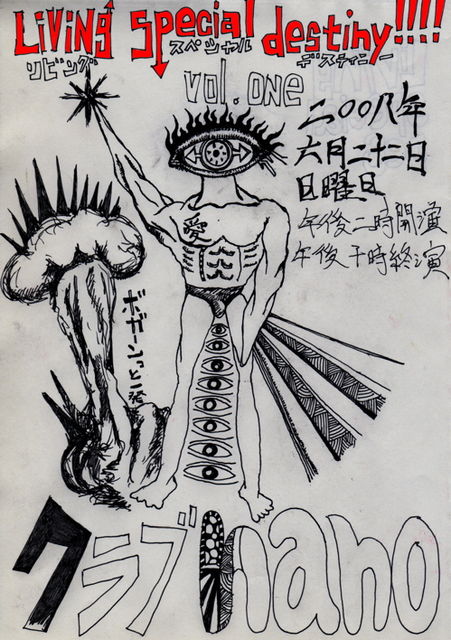 LiViNg Special destiny!!!!
リビング スペシャル デスティニー
vol. one
二〇〇八年
六月二十二日
日曜日
午後二時開演
午後十時終演
愛
ボガーンっと一発
クラブnano